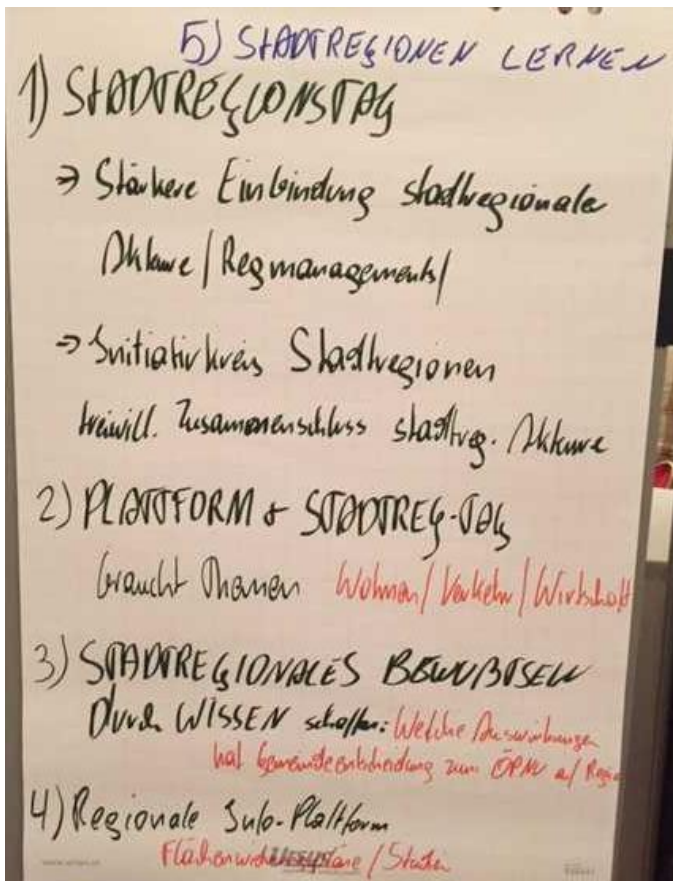 5) STADTREGIONEN LERNEN
1) STADTREGIONSTAG
→ Stärkere Einbindung stadtregionale
Akteure / Regmanagements /
→ Initiativkreis Stadtregionen
freiwill. Zusammenschluss stadtreg. Akteure
2) PLATTFORM + STADTREG-TAG
braucht Themen Wohnen / Verkehr / Wirtschaft
3) STADTREGIONALES BEWUßTSEIN
Durch WISSEN schaffen: Welche Auswirkungen
hat Gemeindeentscheidung zum ÖPNV a/ Region
4) Regionale Info-Plattform
/ Studien